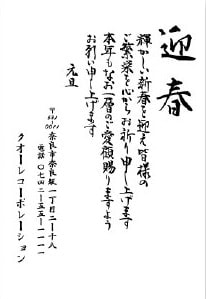 迎春
輝かしい新春を迎え皆様の
ご繁栄を心からお祈り申し上げます
本年もなお一層のご愛顧賜りますよう
お願い申し上げます
元旦
奈良市奈良阪一丁目二ー十八
電話 〇七四二ー五五ー一一一一
クオーレコーポレーション